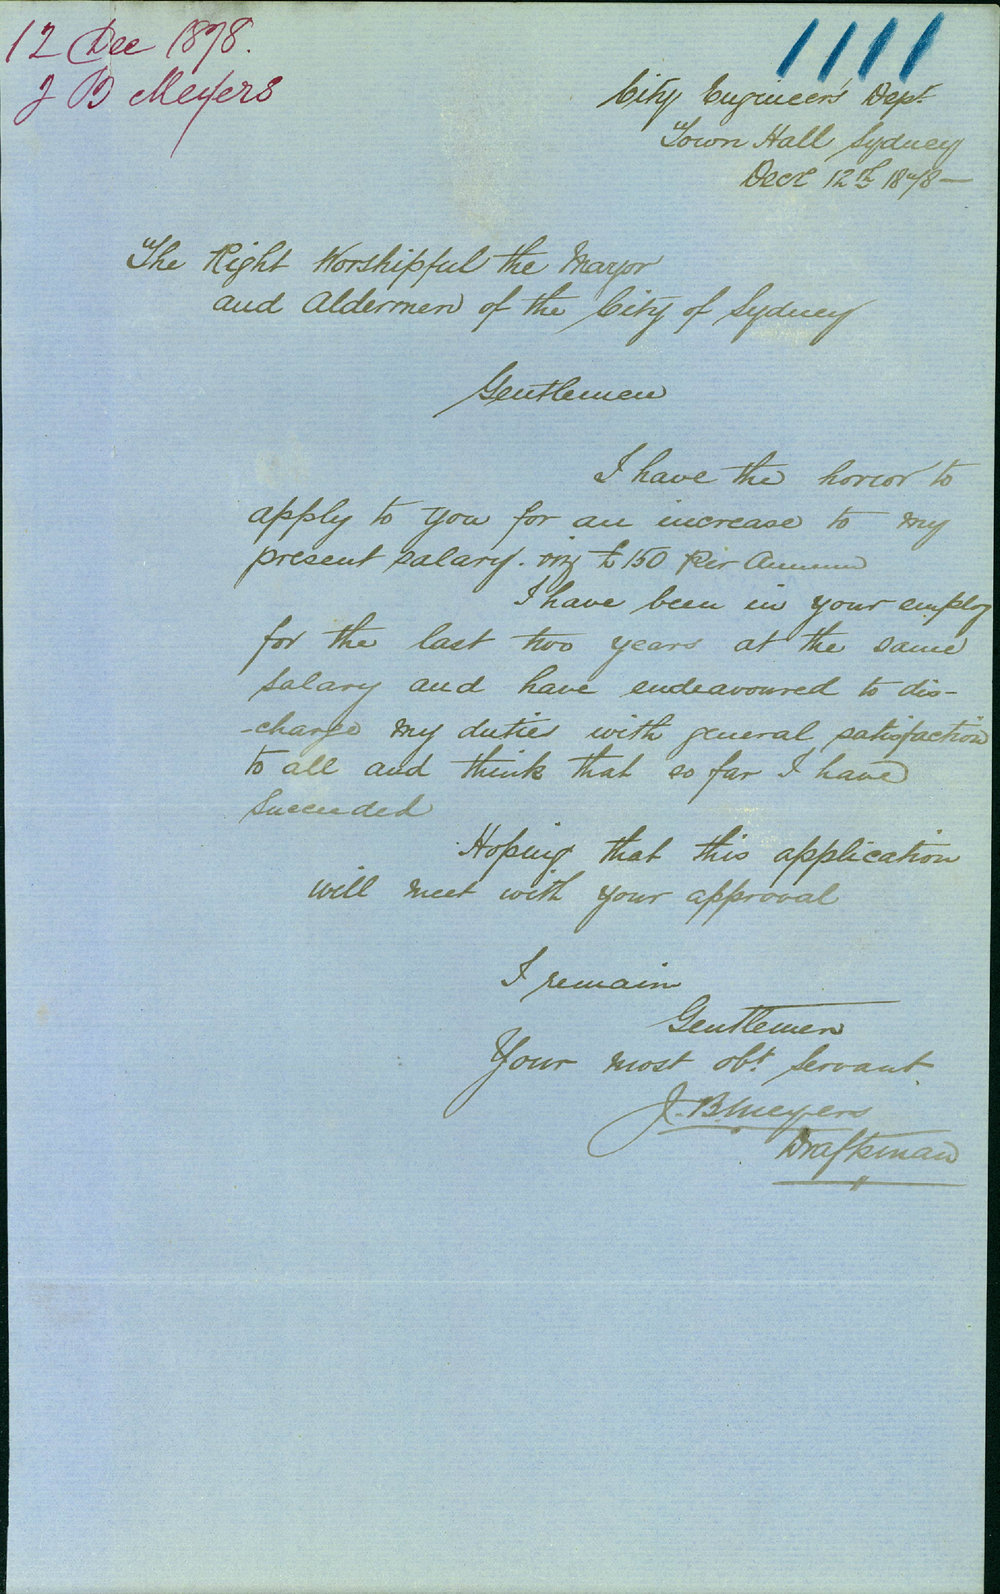 12 Dec 1878.
J B Meyers
1111
City Engineer's Dept
Town Hall Sydney
Decr 12th 1878—
The Right Worshipful the Mayor
and Aldermen of the City of Sydney
Gentlemen
I have the honor to
apply to you for an increase to my
present salary. viz £150 Per Annum
I have been in your employ
for the last two years at the same
salary and have endeavoured to dis-
-charge my duties with general satisfaction
to all and think that so far I have
succeeded
Hoping that this application
will meet with your approval
I remain
Gentlemen
Your most obt. servant
J. B. Meyers
Draftsman